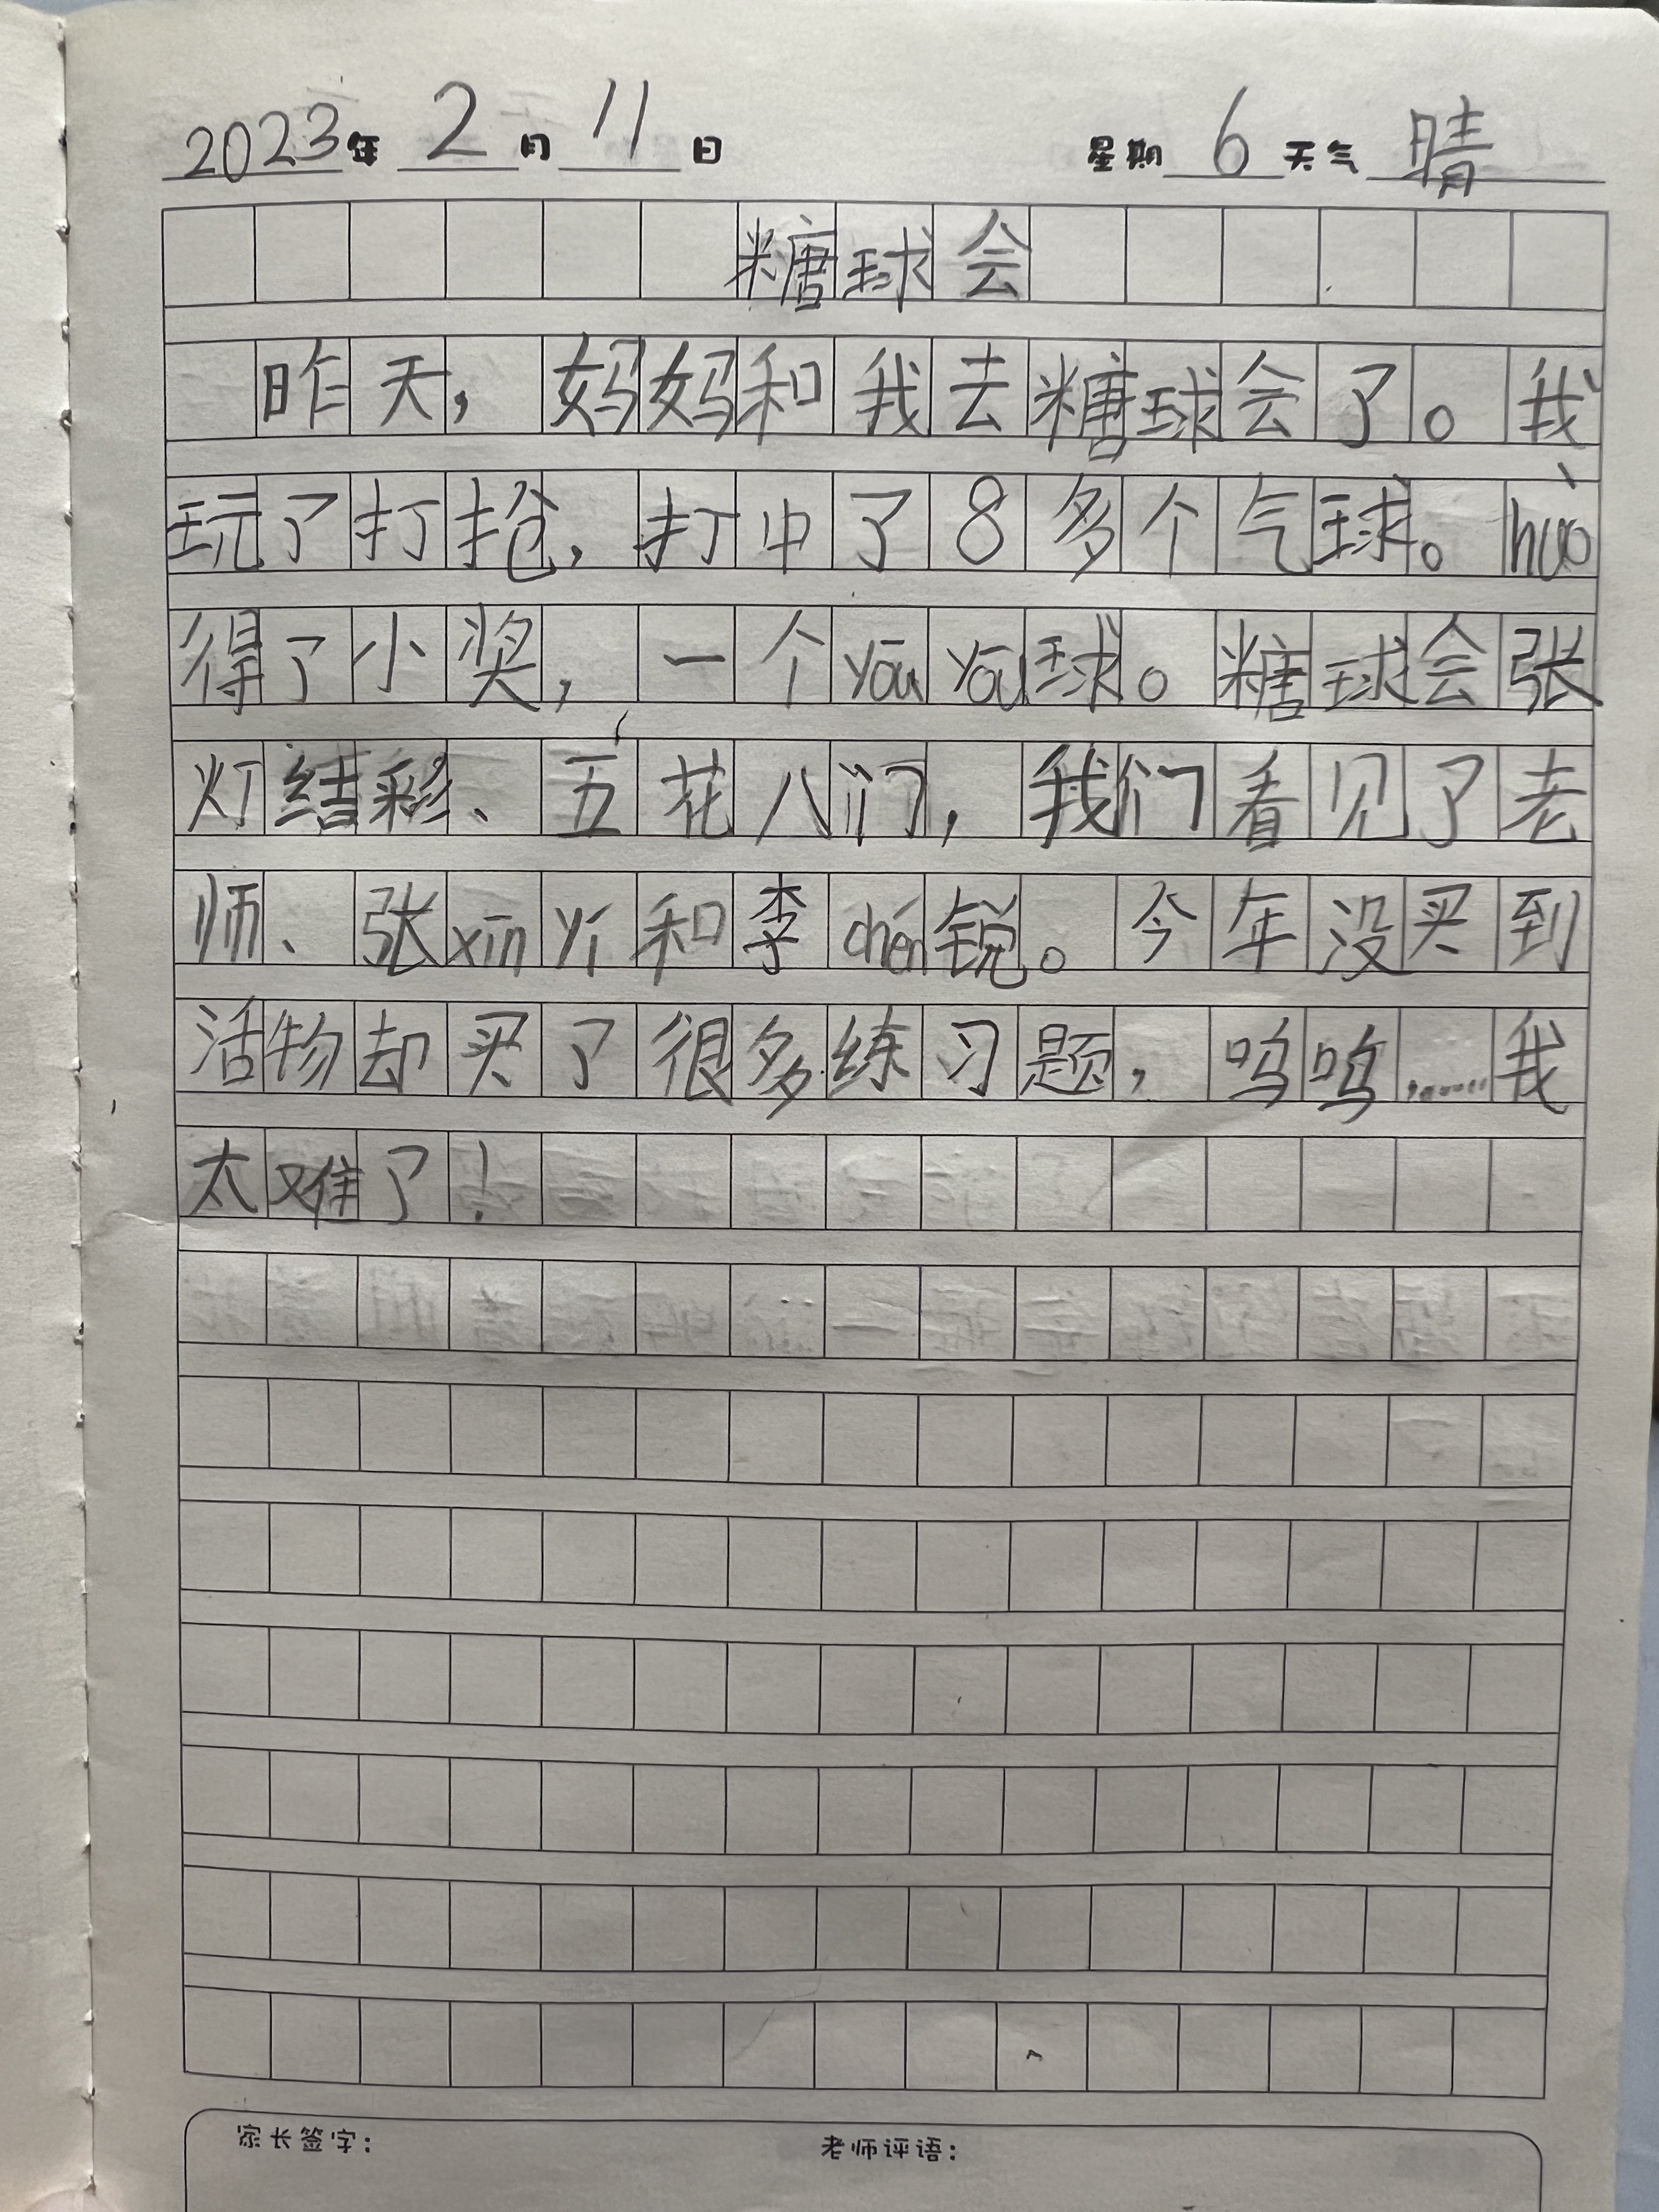 2023年 2 月 11 日 星期 6 天气 晴
糖球会
昨天，妈妈和我去糖球会了。我
玩了打抢，打中了8多个气球。huò
得了小奖，一个yōu yōu球。糖球会张
灯结彩、五花八门，我们看见了老
师、张xīn yí和李chén锐。今年没买到
活物却买了很多练习题，呜呜……我
太难了！
家长签字： 老师评语：